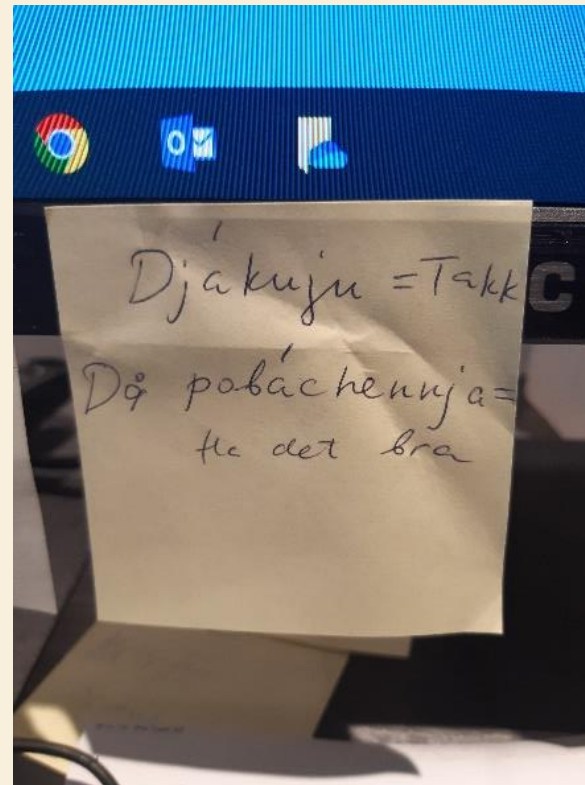 Djákuju = Takk
Då pobáchennja =
Ha det bra